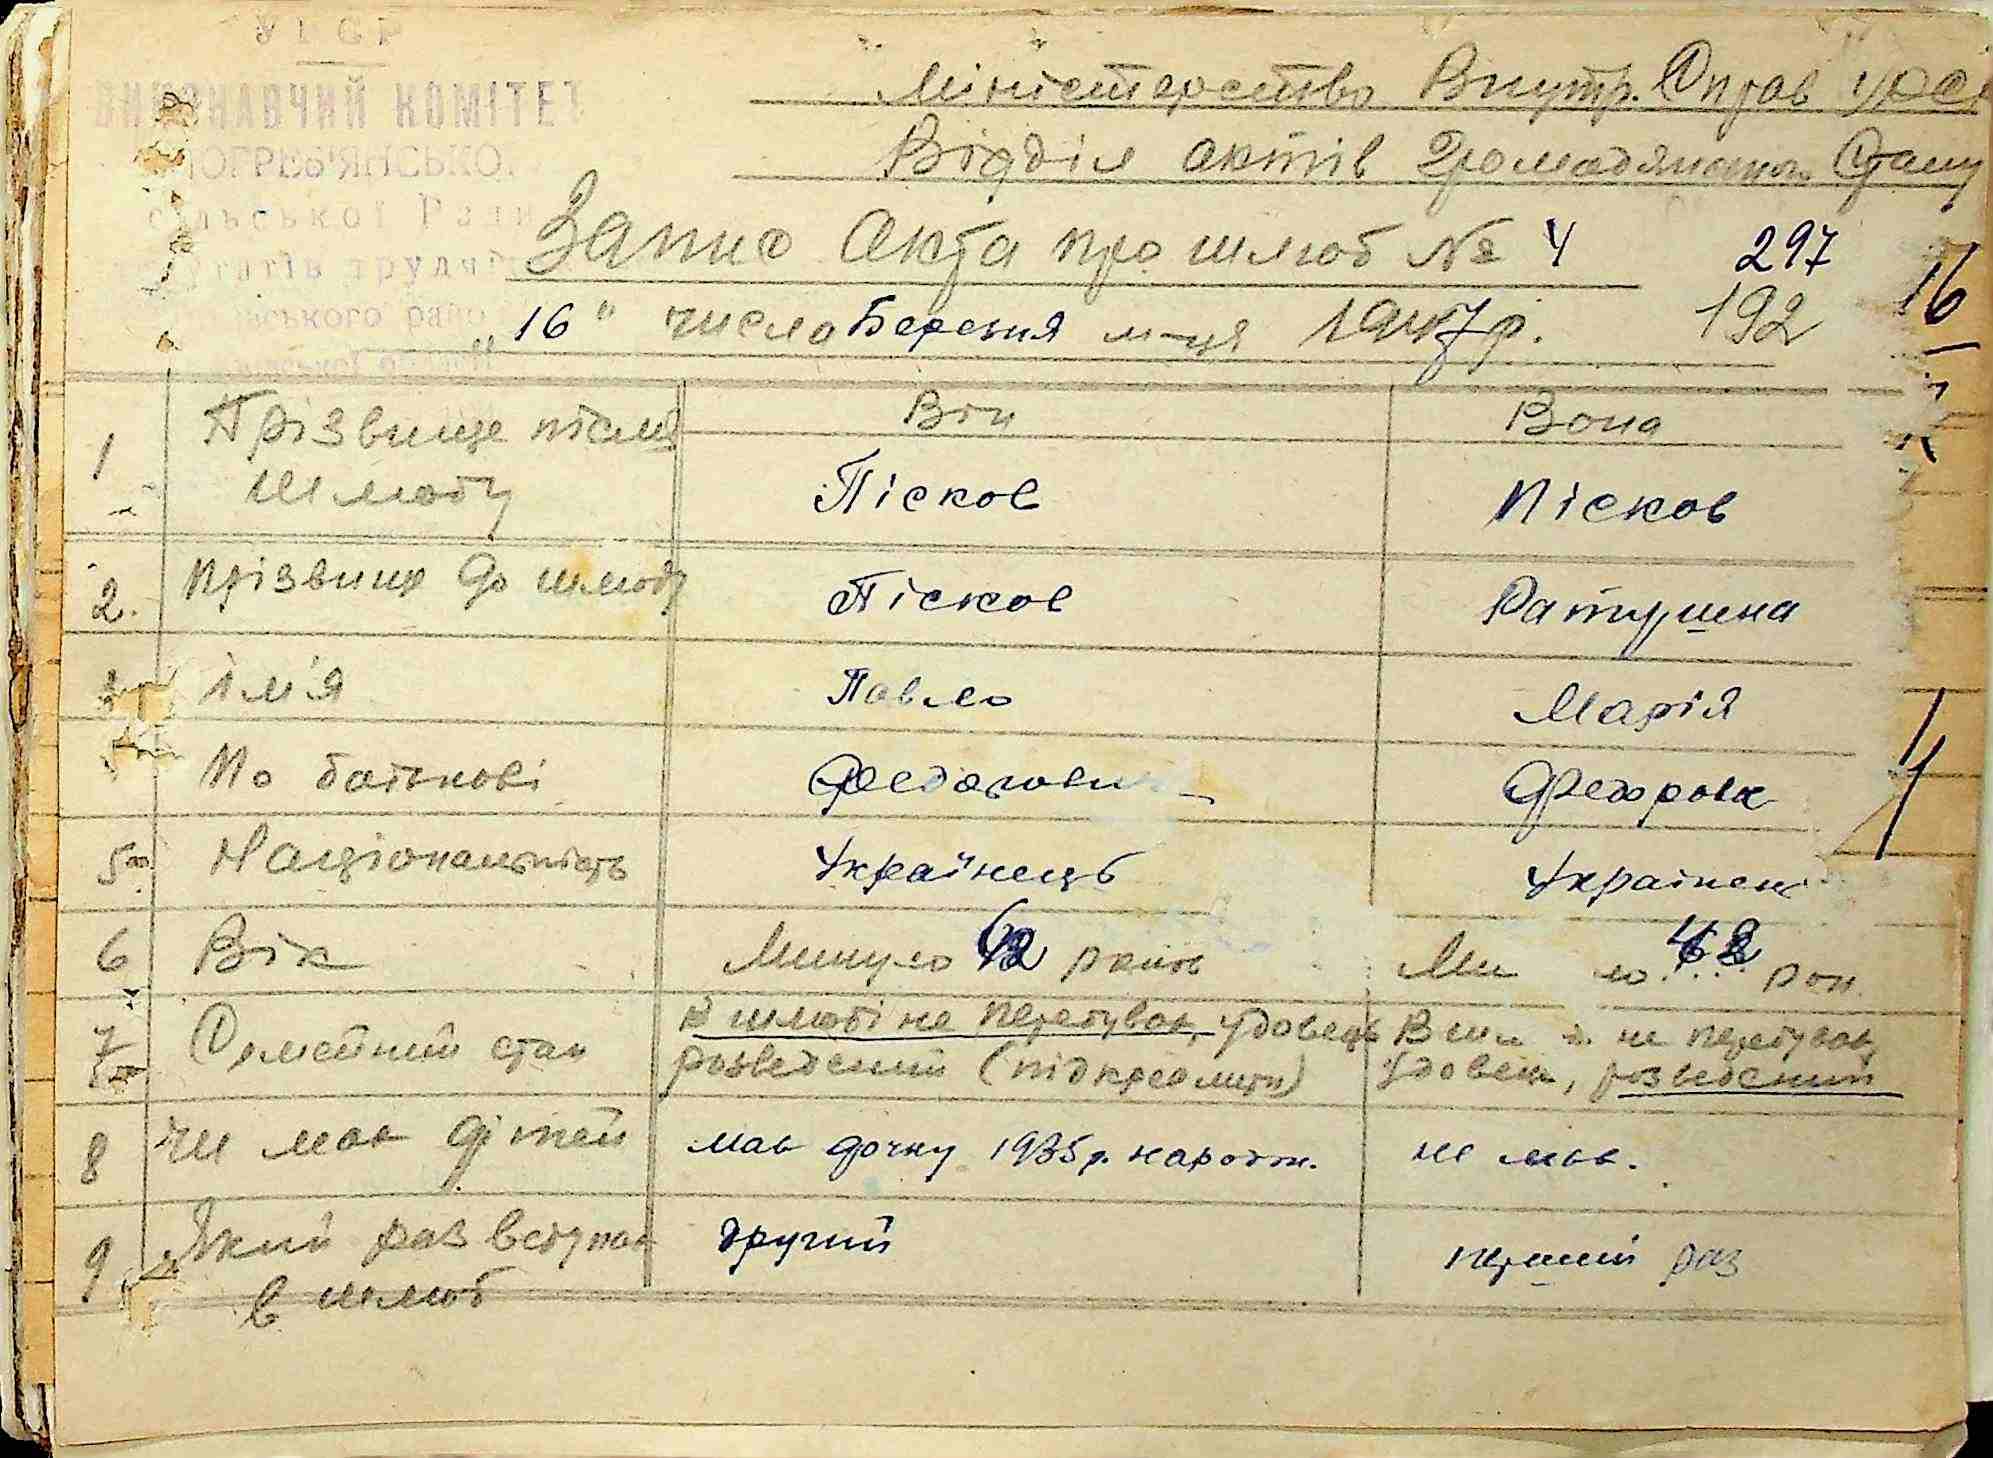 УРСР
ВИКОНАВЧИЙ КОМІТЕТ
ПОГРЕБ'ЯНСЬКО
сільської Ради
депутатів трудящ
Міністерство Внутр. Справ УРСР
Відділ актів Громадянськ. Стану
Запис Акта про шлюб № 4 297
"16" число Березня м-ця 1947 р. 192
16
1 Прізвище після шлюбу Він Вона
Пісков Пісков
2. Прізвище до шлюбу Пісков Ратушна
Ім'я Павло Марія
По батькові Федорови Федоровн
5 Національність Українець Українк
6 Вік Минуло років Ми ло рок.
7 Сімейний стан В шлюбі не перебував, удовець В шл і не перебував,
розведений (підкреслити) удовець, розведений
8 Чи має дітей має дочку 1935 р. народж. не має.
9 Який раз вступає другий перший раз
в шлюб